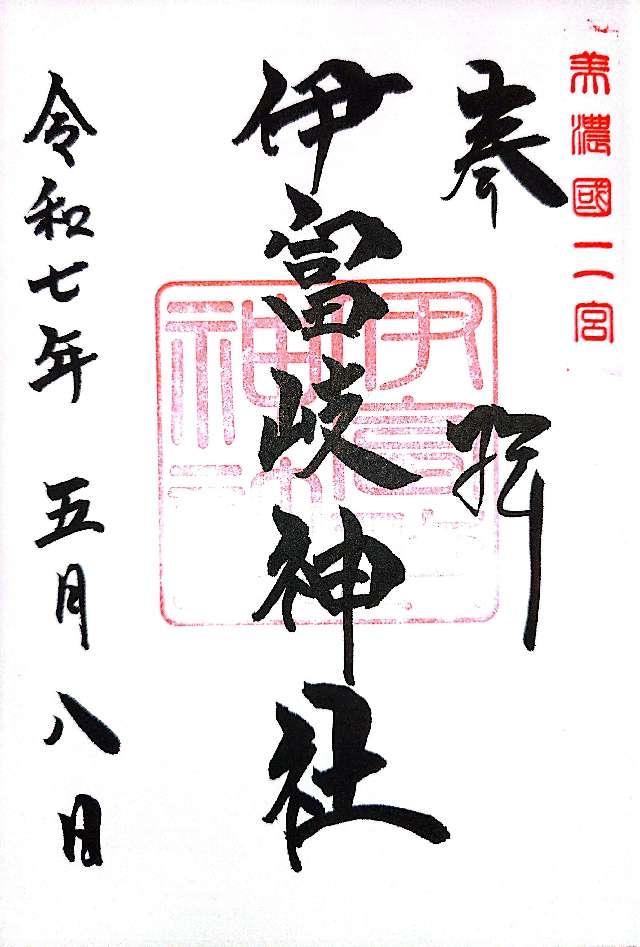 美濃國二宮
奉拝
伊富岐神社
令和七年 五月八日